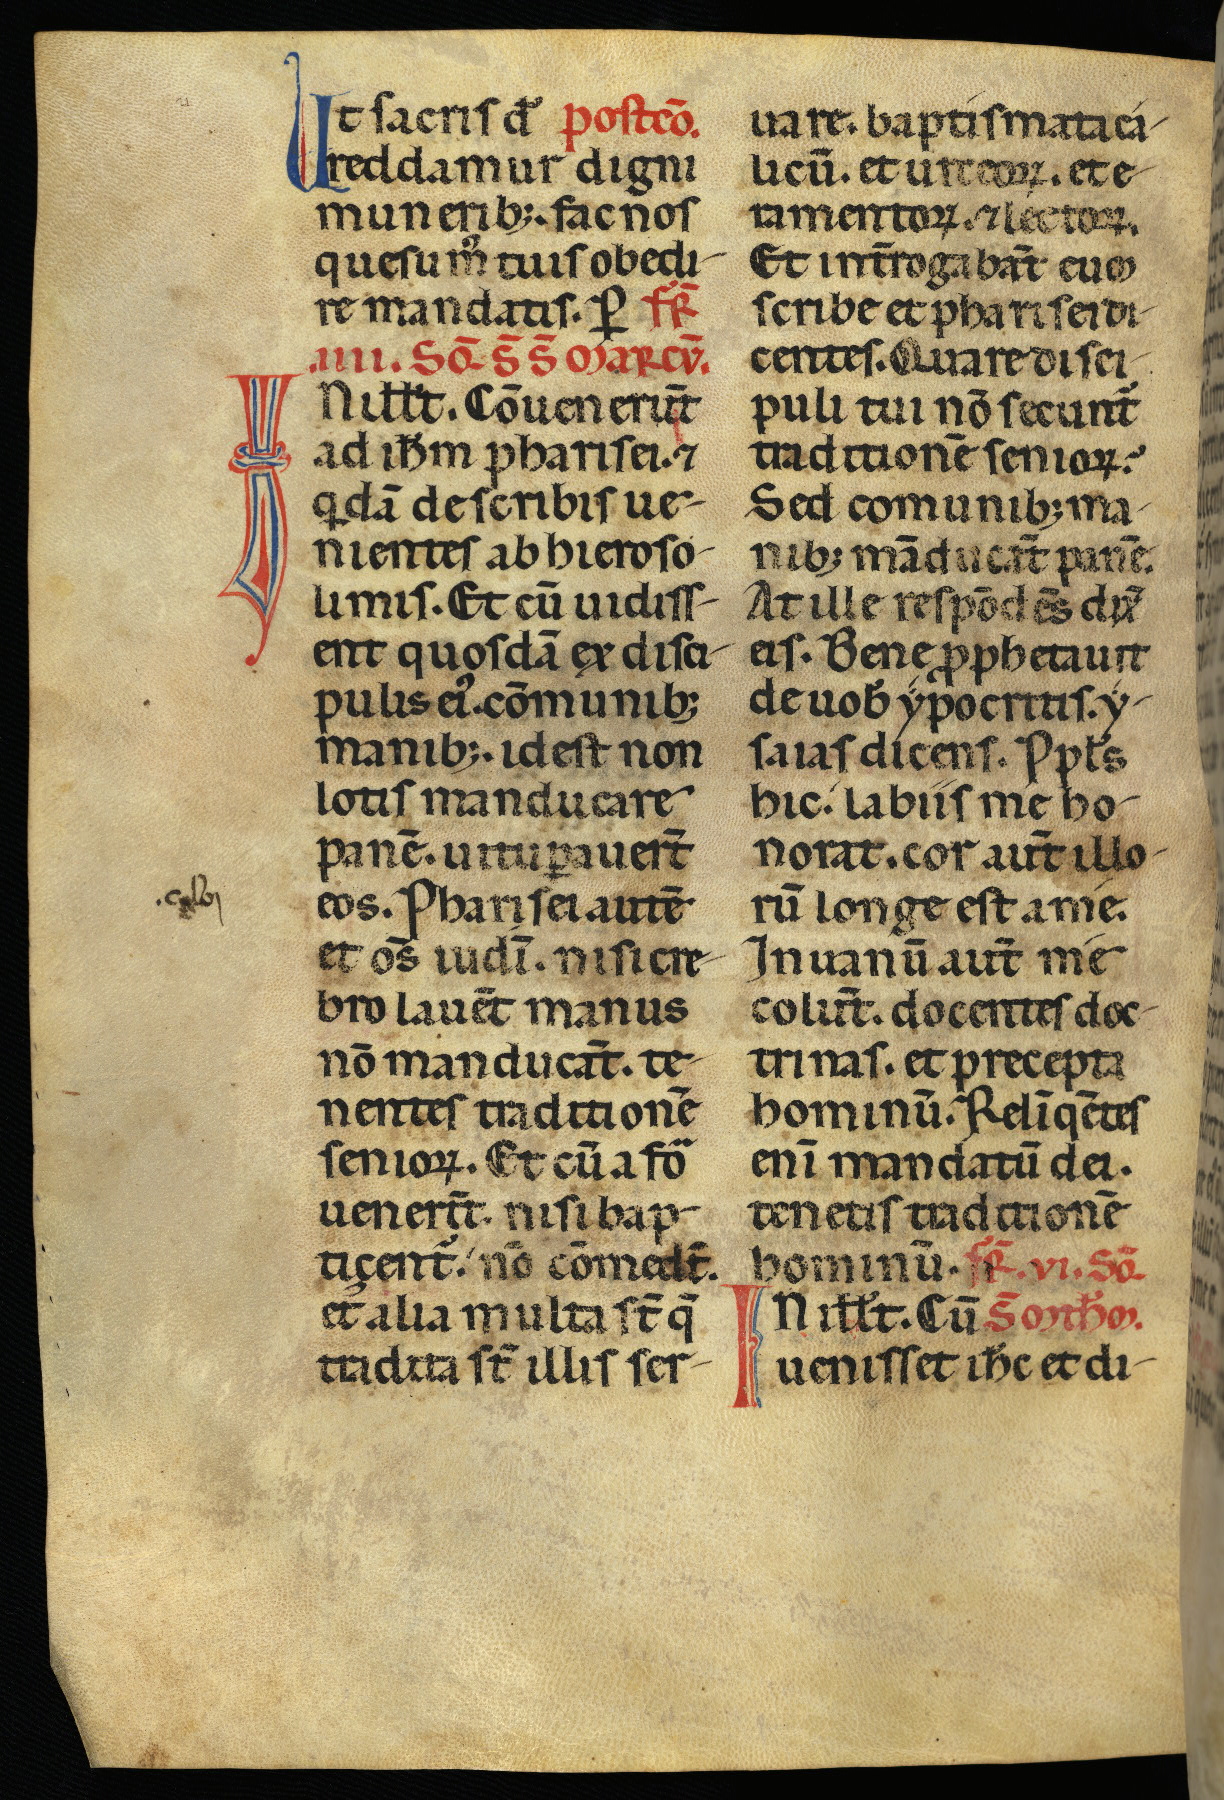 Ut sacris d̄s postcō.
reddamur digni
munerib;. fac nos
quesumꝰ tuis obedi-
re mandatis. P fr̄
.iiii. Sō. S̄ S̄ Marcū.
IN illt̄. Cōuenerūt
ad ih̄m pharisei. ⁊
q̄dā de scribis ue-
nientes ab hieroso-
limis. Et cū uidiss-
ent quosdā ex disci-
pulis eiꝰ. cōmunib;
manib;. id est non
lotis manducare
panē. uituꝑauert̄
eos. Pharisei autē
et om̄s iudī. nisi cre-
bro lauēt manus
nō manducāt. te-
nentes traditionē
senioꝝ. Et cū a fo᷒
uenerīt. nisi bap-
ticent᷑. nō cōmedt̄.
et alia multa st̄ q̄
tradita st̄ illis ser-
uare. baptismata ca-
licū. et urceoꝝ. et e-
ramentoꝝ. ⁊ lectoꝝ.
Et int̄rogabāt eum
scribe et pharisei di-
centes. Quare disci-
puli tui nō secunt᷑
traditionē senioꝝ.
Sed comunib; ma-
nib; māducāt panē.
At ille respōdēs dix̄
eis. Bene ꝓphetauit
de uob̄ ypocritis. y-
saias dicens. Ppls̄
hic. labiis me ho-
norat. cor aut̄ illo-
rū longe est a me.
In uanū aut̄ me
colūt. docentes doc-
trinas. et precepta
hominū. Relīq̄ētes
enī mandatū dei.
tenetis traditionē
hominū. fr̄. vi. Sō.
IN illt̄. Cū S̄ Mt̄hm.
uenisset ih̄c et di-